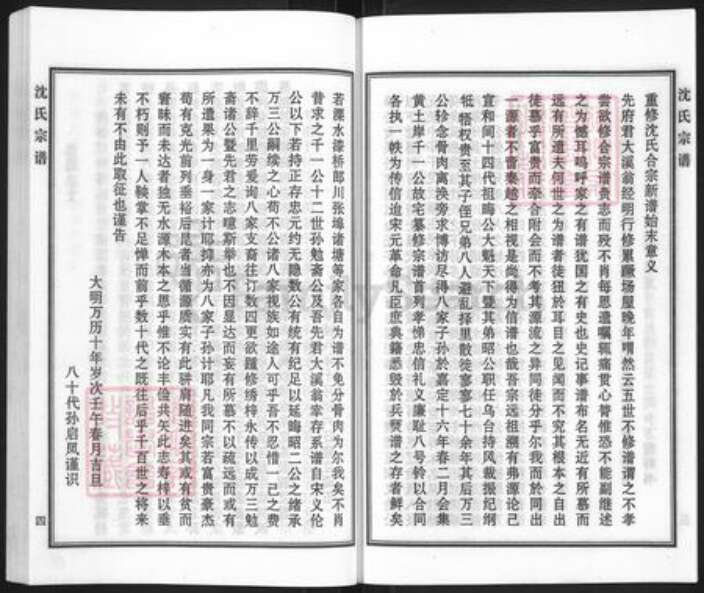 沈氏宗谱
重修沈氏合宗新谱始末意义
先府君大溪翁经明行修累蹶场屋晚年喟然云五世不修谱谓之不孝
尝欲修合宗谱赍志而殁不肖每思遗嘱辄痛贯心膂惟恐不能副继述
之为憾耳呜呼家之有谱犹国之有史也史记事谱布名无近有所慕而
远有所遗夫何世之为谱者徒狃於耳目之见闻而不究其根本之自出
徒慕乎富贵而牵合附会而不考其源流之异同徒分乎尔我而於同出
一源者不啻秦越之相视是尚得为信谱也哉吾宗远祖溯有弗源论己
宣和间十四代祖晦公大魁天下暨其弟昭公职任乌台持风裁振纪纲
牴牾权贵至其子侄兄弟八人避乱择里散徙寥寥七十余年其后万三
公轸念骨肉离涣旁求博访尽得八家子孙於嘉定十六年春二月会集
黄土岸千一公故宅纂修宗谱首列孝悌忠信礼义廉耻八号钤以合同
各执一帙为传信迨宋元革命凡臣庶典籍悉毁於兵燹谱之存者鲜矣
若溧水漆桥郎川张埠诸塘等家各自为谱不免分骨肉为尔我矣不肖
昔求之千一公十二世孙勉斋公及吾先君大溪翁幸存系谱自宋义伦
公以下若持正存忠元约无隐数公有统有纪足以延晦昭二公之绪承
万三公嗣续之心苟不公诸八家视族如途人可乎吾不忍惜一己之费
不辞千里劳爰询八家支裔往订数四更欲锓修绣梓永传以成万三勉
斋诸公暨先君之志噫斯举也不因显达而妄有所慕不以疏远而或有
所遗果为一身一家计耶抑亦为八家子孙计耶凡我同宗若富贵豪杰
苟有克光前列垂裕后昆者当循源质实有此骈肩随进矣其或有贫而
窘昧而未达者独无水源木本之思乎惟不论丰俭共矢此志寿梓以垂
不朽则予一人鞅掌不足惮而前乎数十代之既往后乎千百世之将来
未有不由此取征也谨告
大明万历十年岁次壬午春月吉旦
八十代孙启凤谨识
沈氏宗谱
四